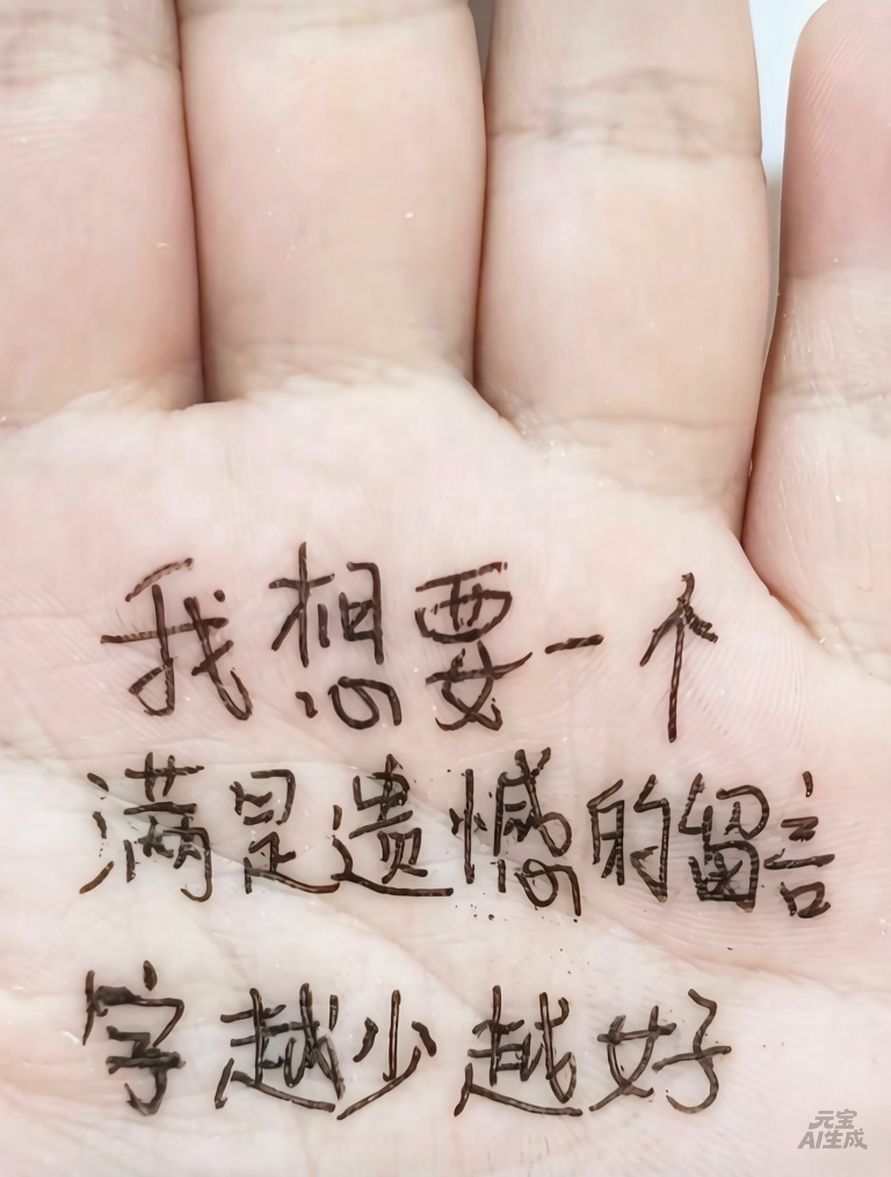 我想要一个
满是遗憾的留言
字越少越好
元宝
AI生成